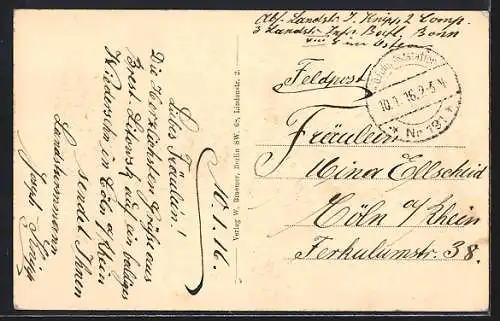 Abs. Landstr. J. Knipp 2 Comp.
3 Landstr. Inft. Batl. Bonn
VIII
Feldpost
10.1.16. 9-5 N
* Nr. 131 *
Fräulein
Mina Ellscheid
Cöln a/Rhein
Ferkulumstr. 38.
Verlag W. Braemer, Berlin SW. 68, Lindenstr. 2.
10.1.16.
Liebes Fräulein!
Die Herzlichsten Grüße aus
Brest-Litowsk auf ein baldiges
Wiedersehn in Cöln a/Rhein
sendet Ihnen
Landsturmmann
Joseph Knipp